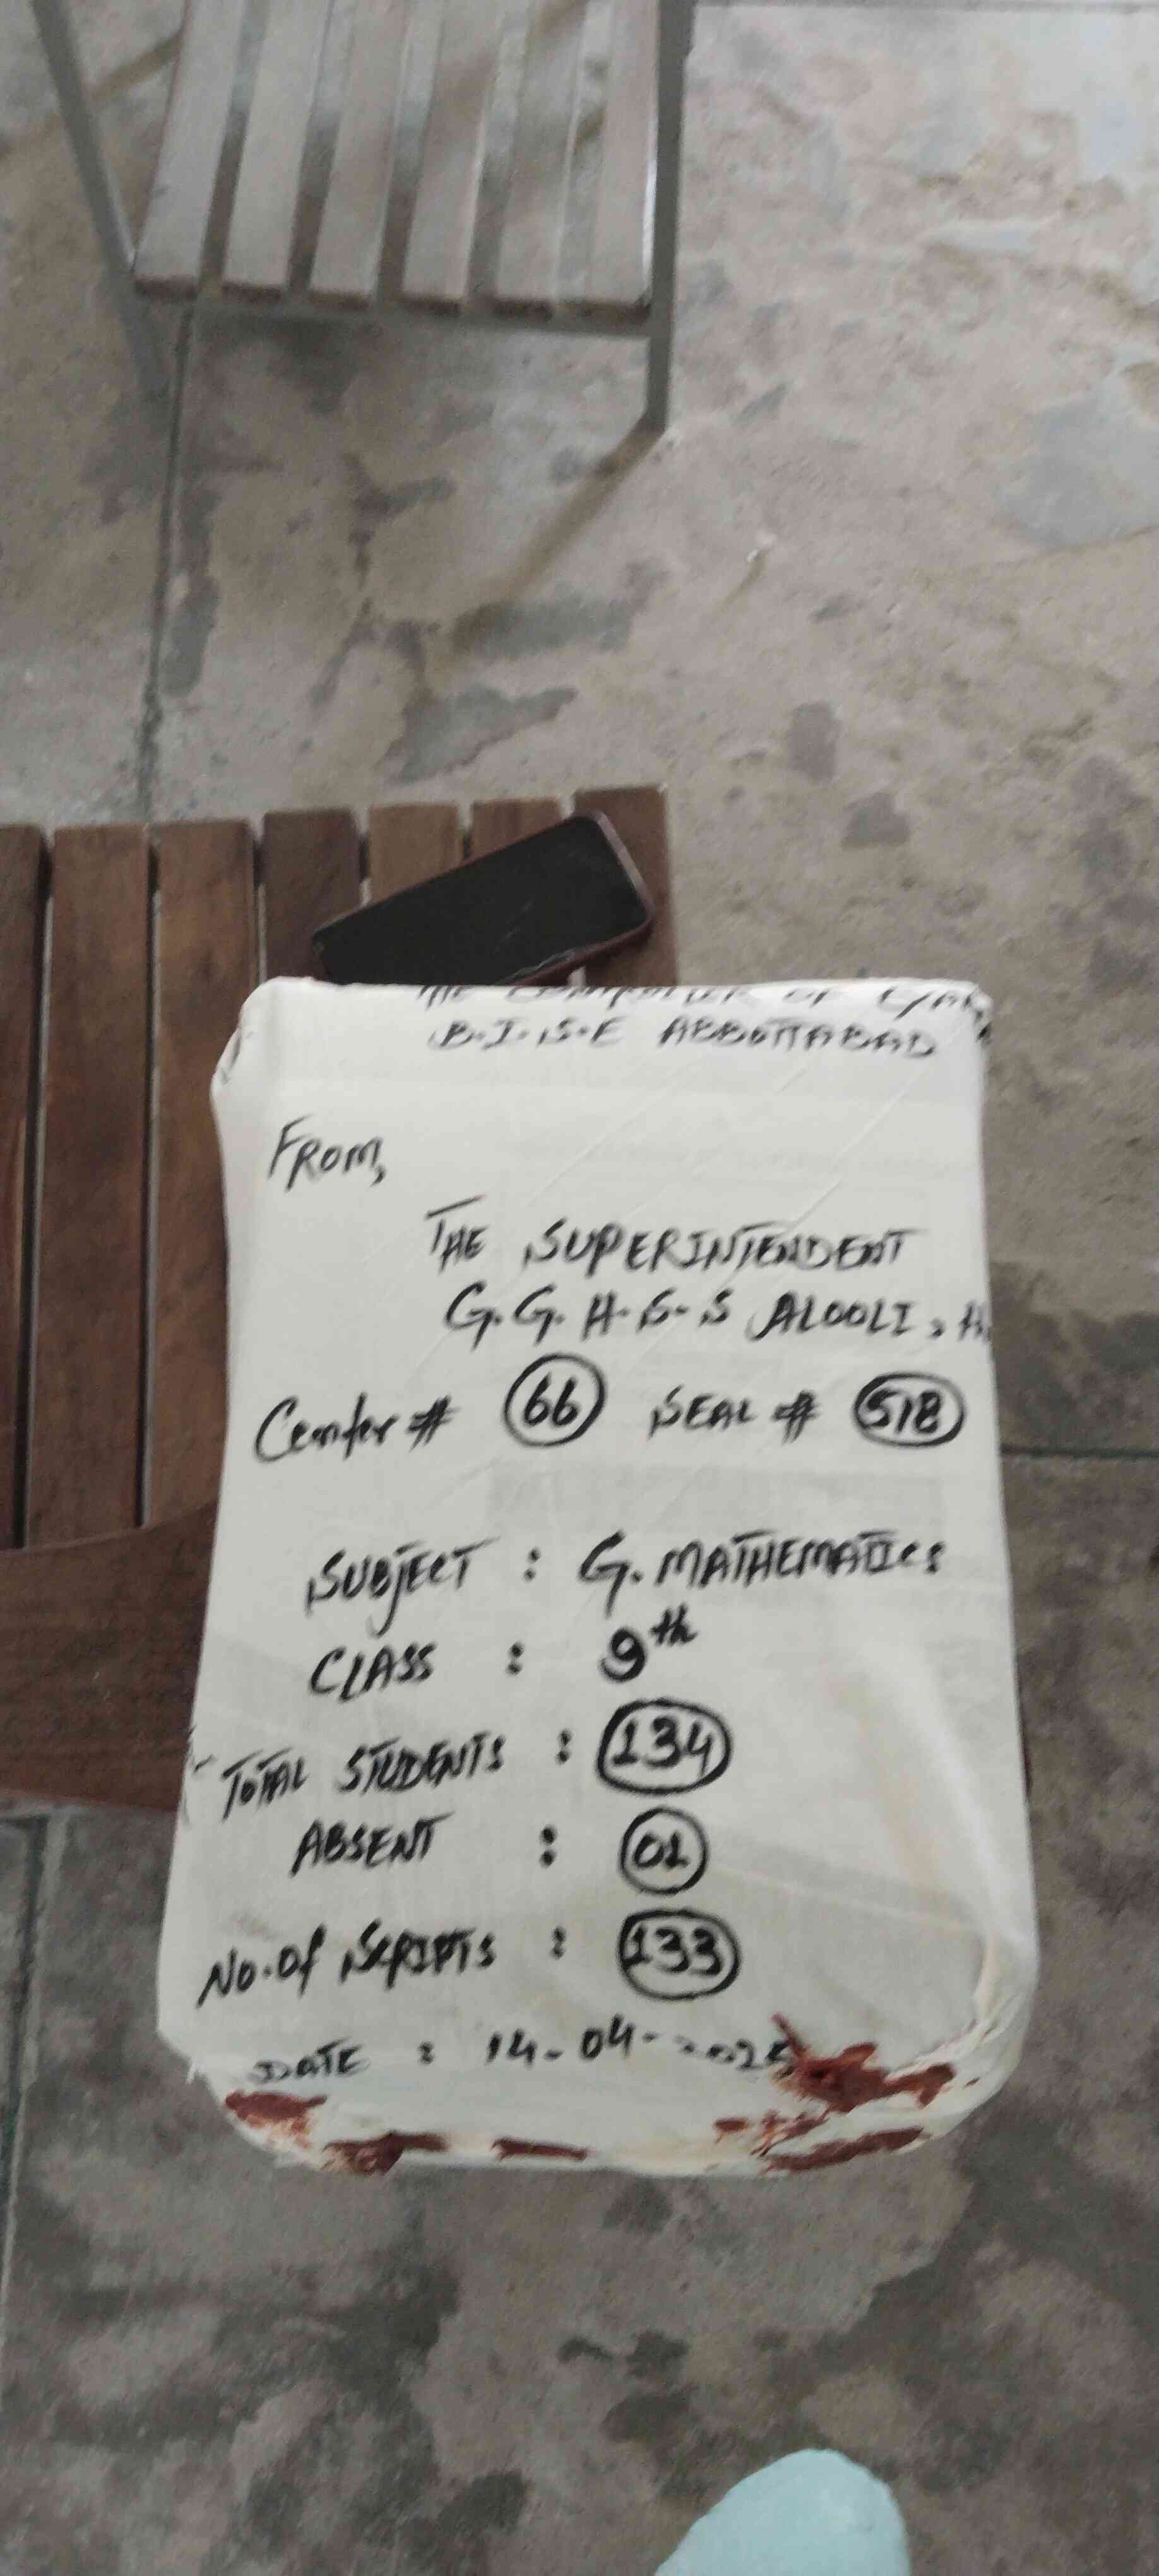 THE CONTROLLER OF
B.I.S.E ABBOTTABAD
FROM,
THE SUPERINTENDENT
G.G.H.S.S ALOOLI,
Center # 66 SEAL # 518
SUBJECT : G. MATHEMATICS
CLASS : 9th
TOTAL STUDENTS : 134
ABSENT : 01
No. Of SCRIPTS : 133
DATE : 14-04-2025